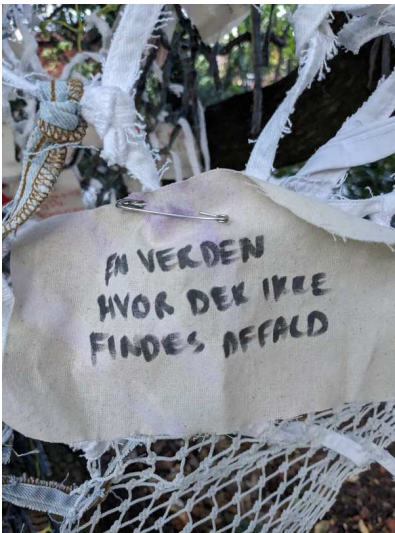 EN VERDEN
HVOR DER IKKE
FINDES AFFALD